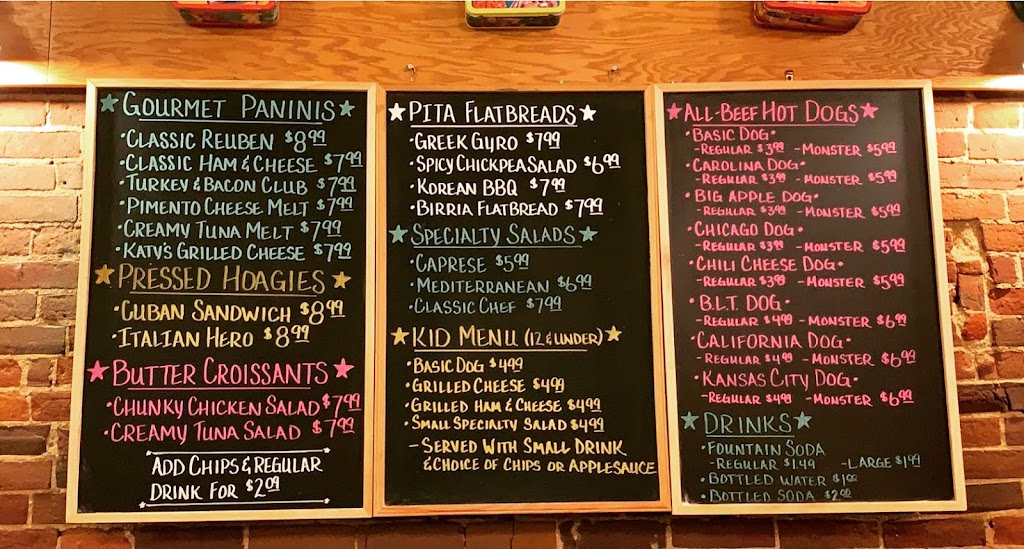 ★GOURMET PANINIS★
•CLASSIC REUBEN $8.99
•CLASSIC HAM & CHEESE $7.99
•TURKEY & BACON CLUB $7.99
•PIMENTO CHEESE MELT $7.99
•CREAMY TUNA MELT $7.99
•KATY'S GRILLED CHEESE $7.99
★PRESSED HOAGIES★
•CUBAN SANDWICH $8.99
•ITALIAN HERO $8.99
★BUTTER CROISSANTS★
•CHUNKY CHICKEN SALAD $7.99
•CREAMY TUNA SALAD $7.99
ADD CHIPS & REGULAR
DRINK FOR $2.09
★PITA FLATBREADS★
•GREEK GYRO $7.99
•SPICY CHICKPEA SALAD $6.99
•KOREAN BBQ $7.99
•BIRRIA FLATBREAD $7.99
★SPECIALTY SALADS★
•CAPRESE $5.99
•MEDITERRANEAN $6.99
•CLASSIC CHEF $7.99
★KID MENU (12 & UNDER)★
•BASIC DOG $4.99
•GRILLED CHEESE $4.99
•GRILLED HAM & CHEESE $4.99
•SMALL SPECIALTY SALAD $4.99
-SERVED WITH SMALL DRINK
& CHOICE OF CHIPS OR APPLESAUCE
★ALL-BEEF HOT DOGS★
•BASIC DOG•
-REGULAR $3.99 -MONSTER $5.99
•CAROLINA DOG•
-REGULAR $3.99 -MONSTER $5.99
•BIG APPLE DOG•
-REGULAR $3.99 -MONSTER $5.99
•CHICAGO DOG•
-REGULAR $3.99 -MONSTER $5.99
•CHILI CHEESE DOG•
-REGULAR $3.99 -MONSTER $5.99
•B.L.T. DOG•
-REGULAR $4.99 -MONSTER $6.99
•CALIFORNIA DOG•
-REGULAR $4.99 -MONSTER $6.99
•KANSAS CITY DOG•
-REGULAR $4.99 -MONSTER $6.99
★DRINKS★
•FOUNTAIN SODA
-REGULAR $1.49 -LARGE $1.99
•BOTTLED WATER $1.00
•BOTTLED SODA $2.00